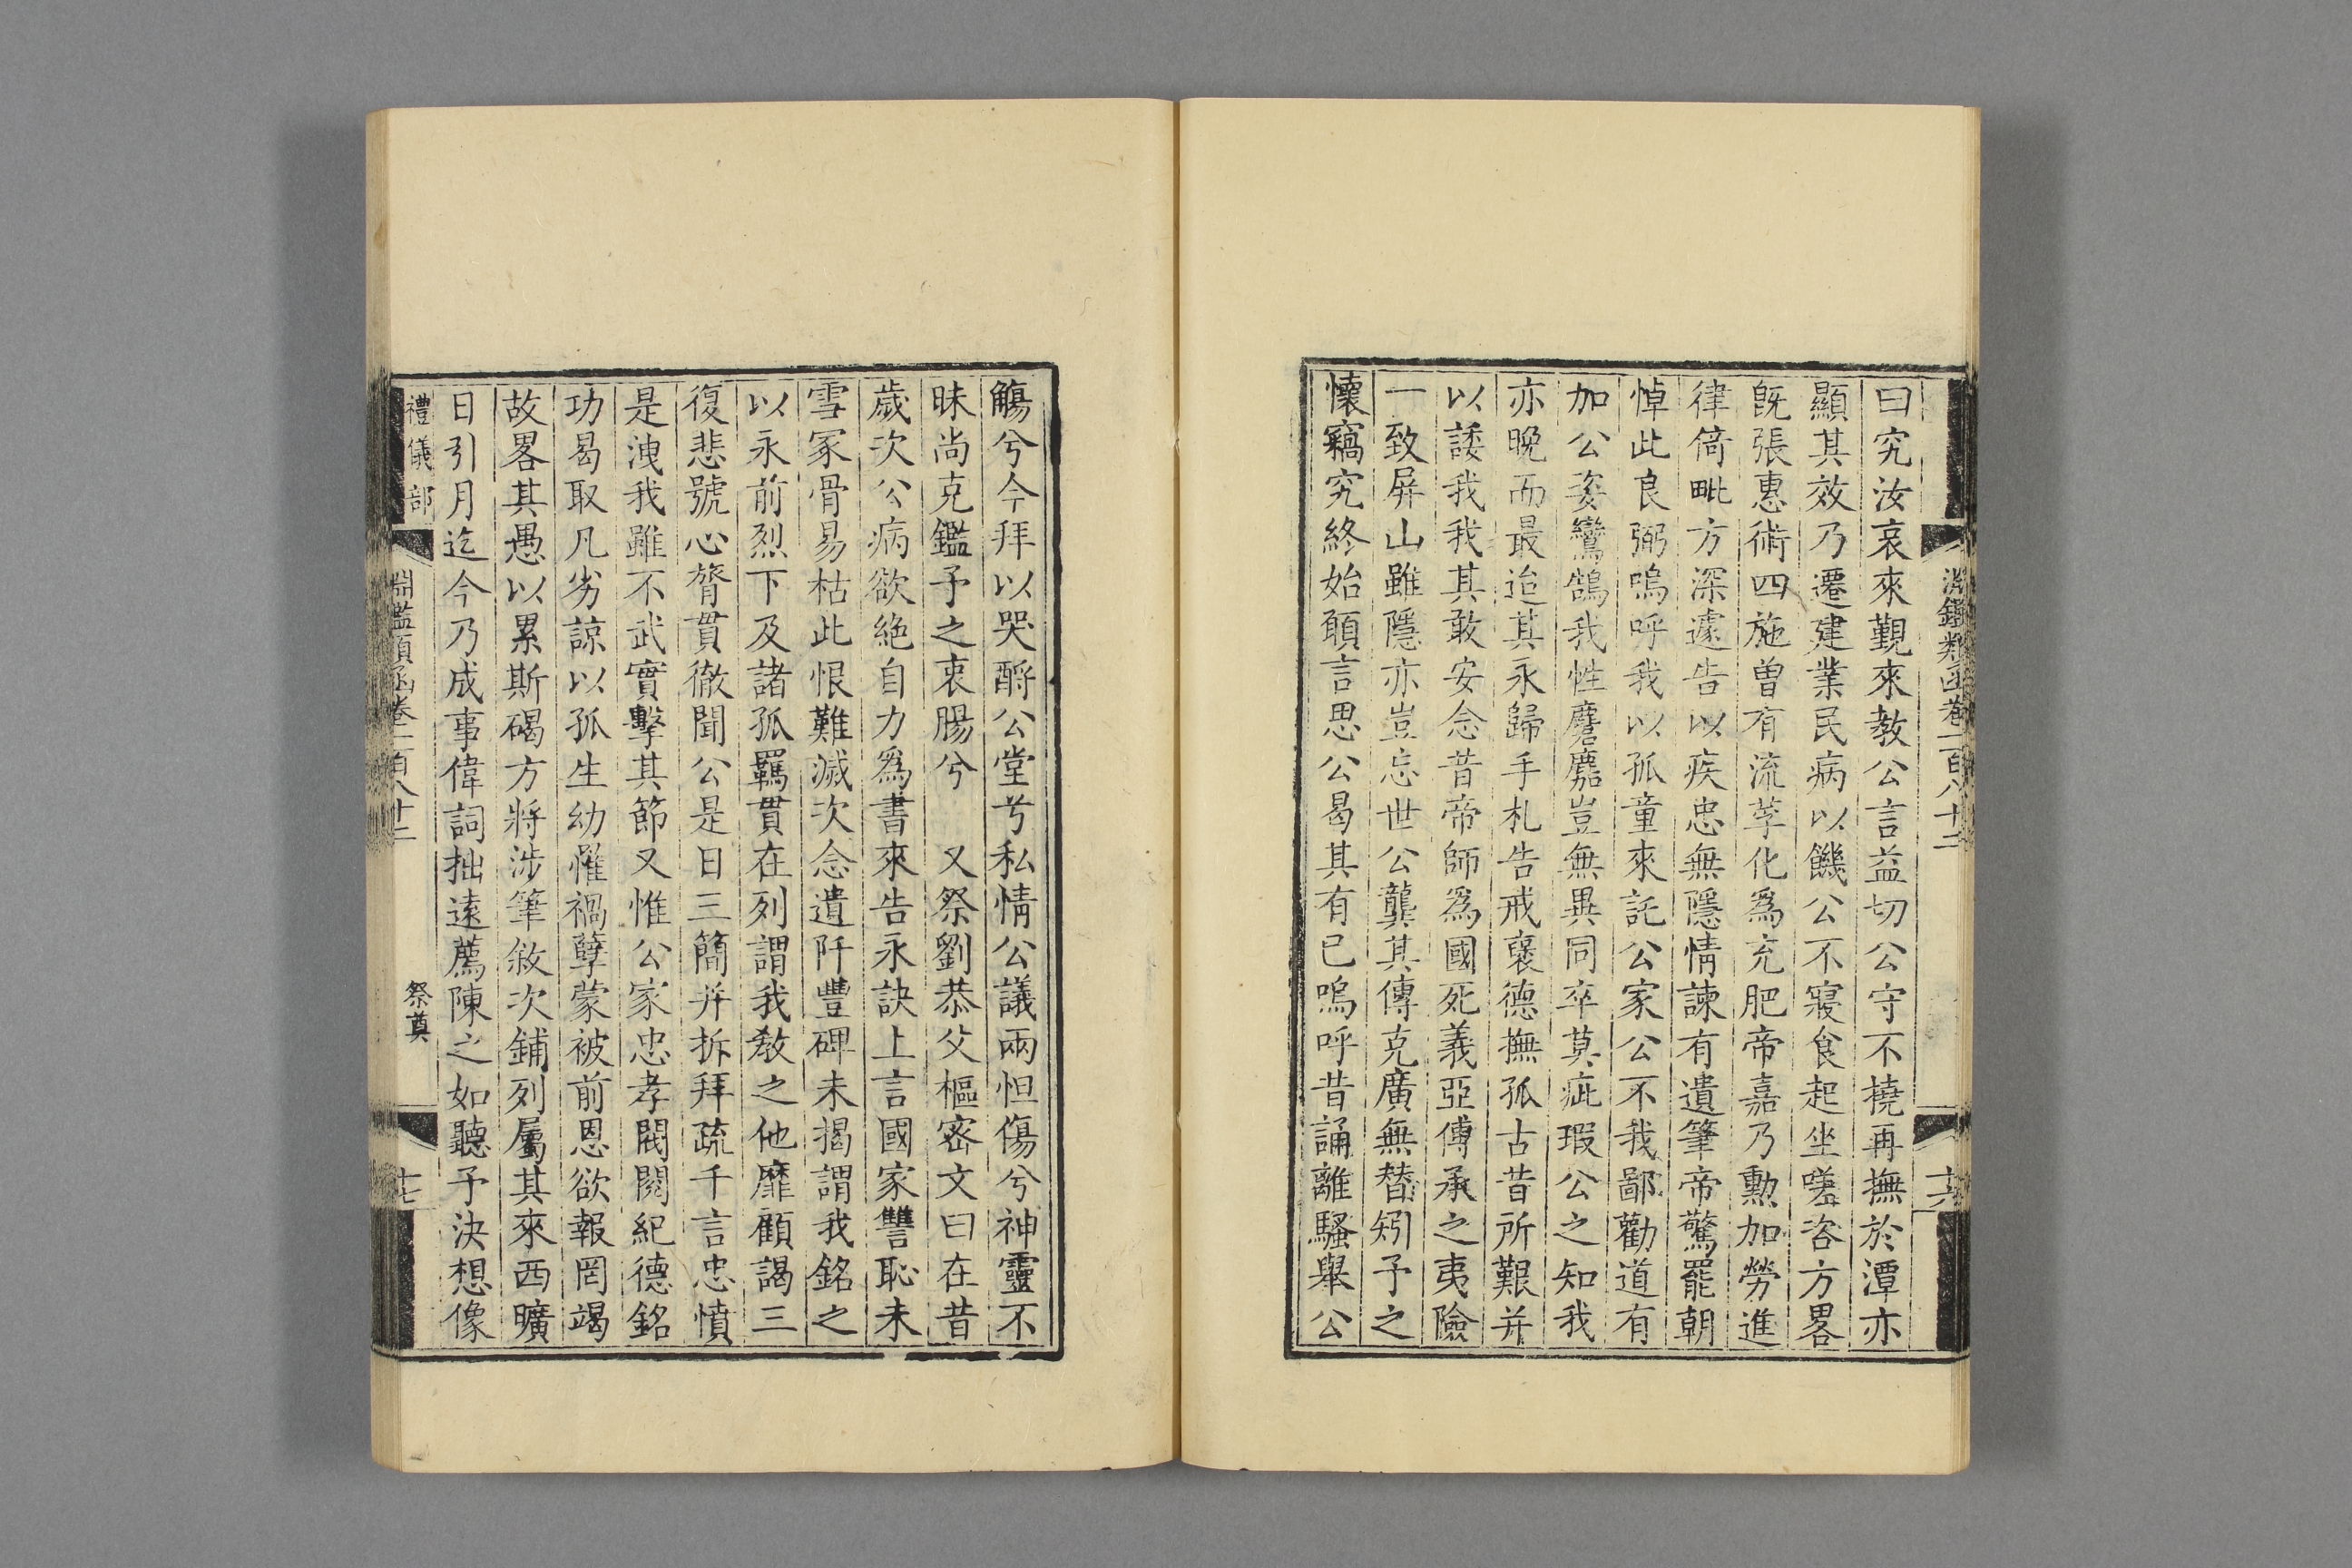 淵鑑類函卷一百八十二
十六
曰究汝哀來覲來教公言益切公守不撓再撫於潭亦
顯其效乃遷建業民病以饑公不寢食起坐嗟咨方畧
旣張惠術四施曾有流莩化爲充肥帝嘉乃勲加勞進
律倚毗方深遽告以疾忠無隱情諫有遺筆帝驚罷朝
悼此良弼嗚呼我以孤童來託公家公不我鄙勸道有
加公姿鸞鵠我性麏麚豈無異同卒莫疵瑕公之知我
亦晚而最迨其永歸手札告戒襃德撫孤古昔所艱并
以諉我我其敢安念昔帝師爲國死義亞傅承之夷險
一致屏山雖隱亦豈忘世公龔其傳克廣無替矧予之
懷竊究終始願言思公曷其有已嗚呼昔誦離騷舉公
觴兮今拜以哭酹公堂兮私情公議兩怛傷兮神靈不
昧尚克鑑予之衷腸兮 又祭劉恭父樞密文曰在昔
歲次公病欲絶自力爲書來告永訣上言國家讐恥未
雪冢骨易枯此恨難滅次念遺阡豐碑未揭謂我銘之
以永前烈下及諸孤羈貫在列謂我教之他靡顧謁三
復悲號心膂貫徹聞公是日三簡并拆拜疏千言忠憤
是洩我雖不武實擊其節又惟公家忠孝閥閱紀德銘
功曷取凡劣諒以孤生幼罹禍孽蒙被前恩欲報罔竭
故畧其愚以累斯碣方將涉筆敘次鋪列屬其來西曠
日引月迄今乃成事偉詞拙遠薦陳之如聽予決想像
禮儀部
淵鑑類函卷一百八十二
祭奠
十七